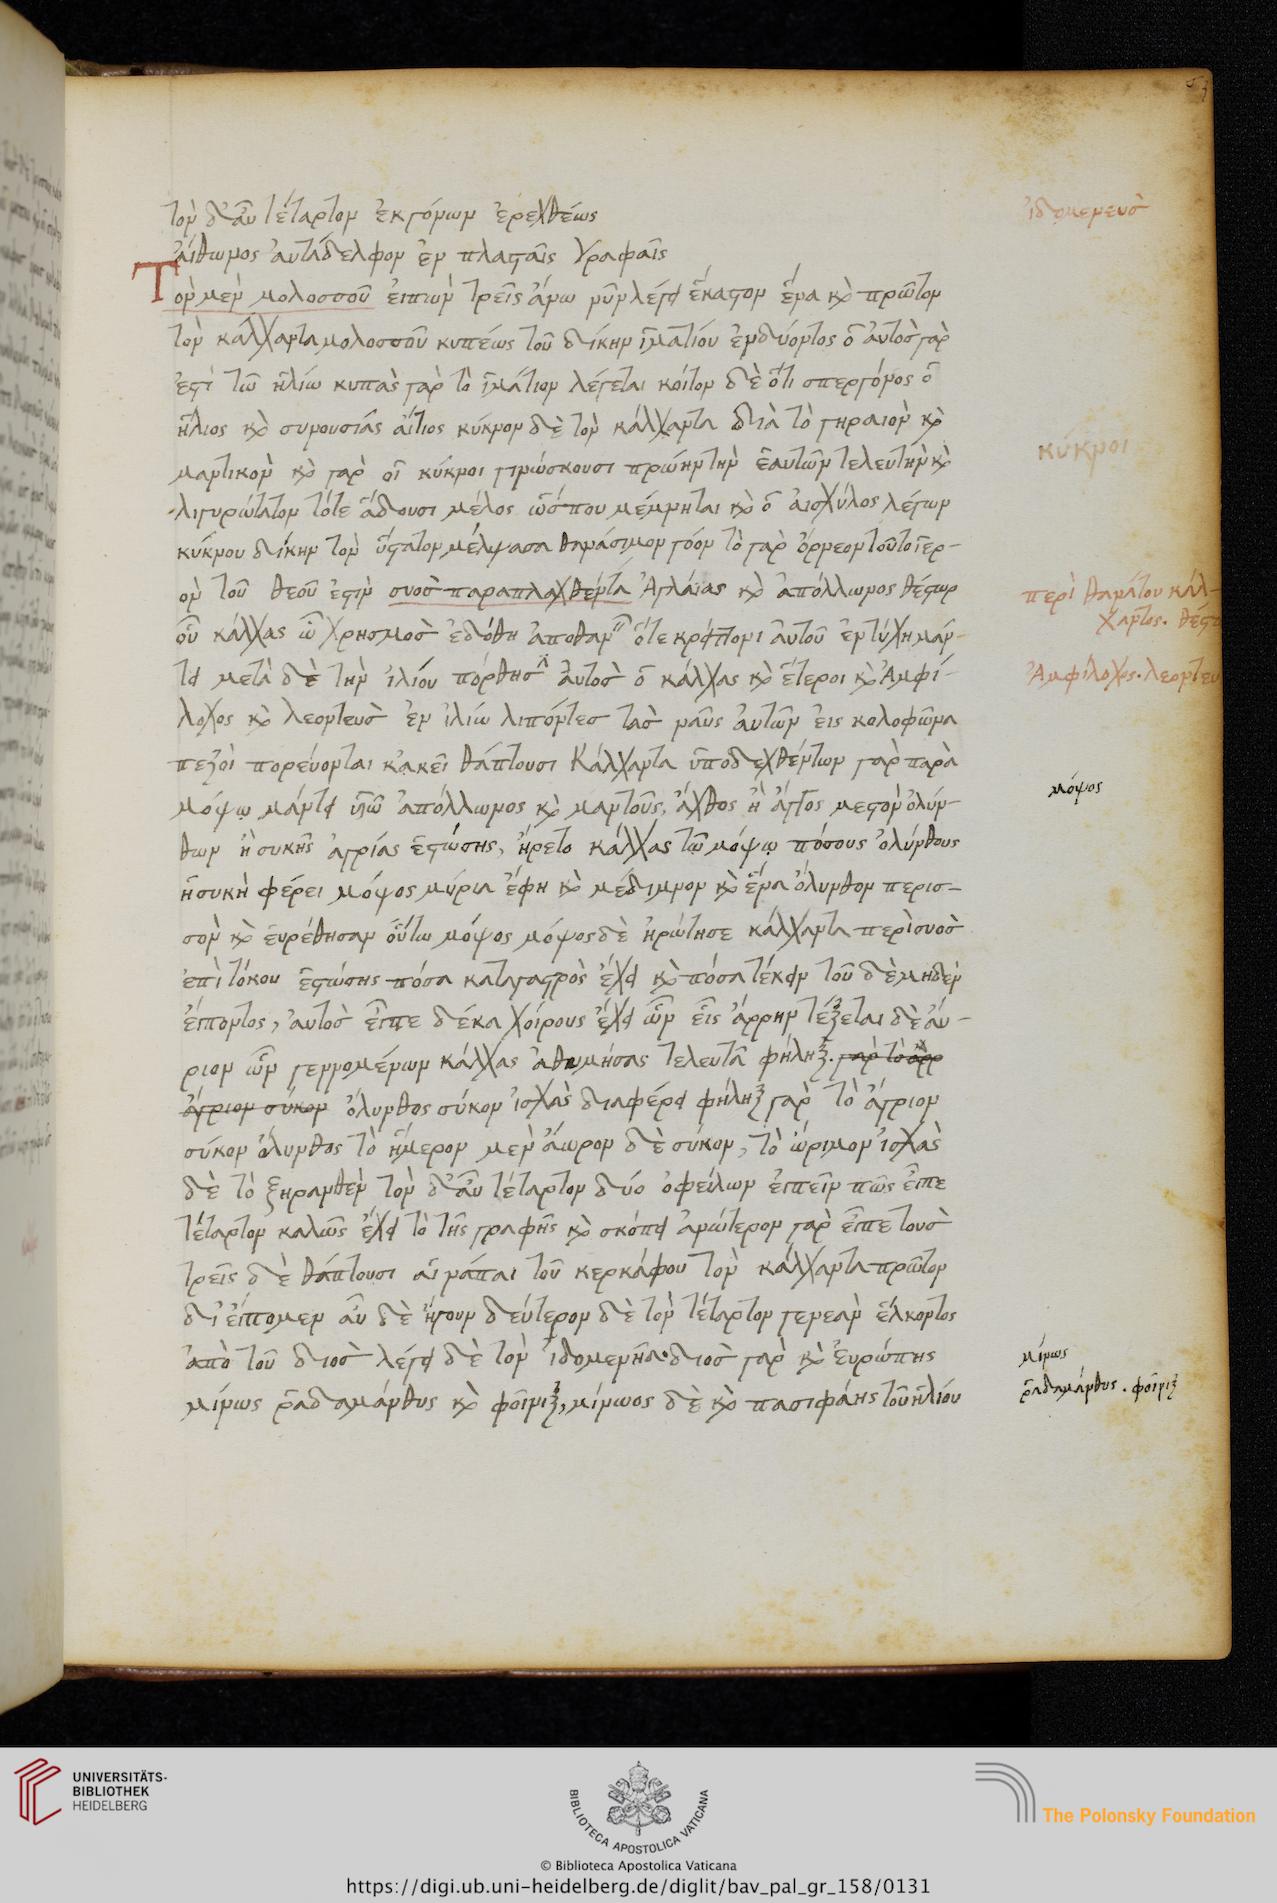 τὸν δ' αὖ τέταρτον ἐκγόνων ἐρεχθέως
αἴθωνος αὐτάδελφον ἐν πλασταῖς γραφαῖς
Τὸν μὲν μολοσσοῦ εἰπὼν τρεῖς ἄνω νῦν λέγει ἕκαστον ἕνα καὶ πρῶτον
τὸν κάλχαντα μολοσσοῦ κυπέως τοῦ δίκην ἱματίου ἐνδύοντος ὁ αὐτὸς γάρ
ἐστι τῶ ἡλίω κυπὰς γὰρ τὸ ἱμάτιον λέγεται κοίτον δὲ ὅτι σπερ γόνος ὁ
ἥλιος καὶ συνουσίας αἴτιος κύκνον δὲ τὸν κάλχαντα διὰ τὸ γηραιὸν καὶ
μαντικὸν καὶ γὰρ οἱ κύκνοι γινώσκουσι πρώην τὴν ἑαυτῶν τελευτὴν καὶ
λιγυρώτατον τότε ἄδουσι μέλος ὥσπου μέμνηται καὶ ὁ αἰσχύλος λέγων
κύκνου δίκην τὸν ὕστατον μέλψασα θανάσιμον γόον τὸ γὰρ ὄρνεον τοῦτο ἱερ-
ὸν τοῦ θεοῦ ἐστὶν συὸς παραπλαχθέντά Ἀγλάϊας καὶ ἀπόλλωνος θέστωρ
οὗ κάλχας ὧ χρησμὸς ἐδόθη ἀποθαν ὅτε κρείττονι αὐτοῦ ἐντύχη μάν-
τει μετὰ δὲ τὴν ἰλίου πόρθησ αὐτὸς ὁ κάλχας καὶ ἕτεροι καὶ Ἀμφί-
λοχος καὶ λεοντεὺς ἐν ἰλίω λιπόντες τὰς ναῦς αὐτῶν εἰς κολοφῶνα
πεζοὶ πορεύονται κἀκεῖ θάπτουσι Κάλχαντα ὑποδεχθέντων γὰρ παρὰ
μόψῳ μάντει υἱῶ ἀπόλλωνος καὶ μαντοῦς, ἄχθος ἢ ἄγγος μεστὸν ὀλύν-
θων ἢ συκῆς ἀγρίας ἑστώσης, ἤρετο κάλχας τῶ μόψῳ πόσους ὀλύνθους
ἡ συκὴ φέρει μόψος μύρια ἔφη καὶ μέδιμνον καὶ ἕνα ὄλυνθον περισ-
σὸν καὶ εὑρέθησαν οὕτω μόψος μόψος δὲ ἠρώτησε κάλχαντα περὶ συὸς
ἐπὶ τόκου ἑστώσης πόσα κατὰ γαστρὸς ἔχει καὶ πόσα τέκειν τοῦ δὲ μηδὲν
εἰπόντος, αὐτὸς εἶπε δέκα χοίρους ἔχει ὧν εἷς ἄρρην τέξεται δὲ αὔ-
ριον ὧν γεννομένων κάλχας ἀθυμήσας τελευτᾶ φήληξ. γὰρ τὸ ἄγρ
ἄγριον σύκον ὄλυνθος σύκον ἰσχὰς διαφέρει φήληξ γὰρ τὸ ἄγριον
σύκον ὄλυνθος τὸ ἥμερον μὲν ἄωρον δὲ σύκον, τὸ ὥριμον ἰσχὰς
δὲ τὸ ξηρανθὲν τὸν δ' αὖ τέταρτον δύο ὀφείλων εἰπεῖν πῶς εἶπε
τέταρτον καλῶς ἔχει τὸ τῆς γραφῆς καὶ σκόπει ἀνώτερον γὰρ εἶπε τοὺς
τρεῖς δὲ θάπτουσι αἱ νάπαι τοῦ κερκάφου τὸν κάλχαντα πρῶτον
δι' εἴπομεν αὖ δὲ ἤγουν δεύτερον δὲ τὸν τέταρτον γενεὰν ἕλκοντος
ἀπὸ τοῦ διὸς λέγει δὲ τὸν ἰδομενῆα· διὸς γὰρ καὶ Εὐρώπης
μίνως ῥαδαμάνθυς καὶ φοῖνιξ, μίνωος δὲ καὶ πασιφάης τοῦ ἡλίου
ἰδομενεὺς
κύκνοι
περὶ θανάτου κάλ-
χαντος. θέστω
Ἀμφίλοχος. λεοντευ
μόψος
μίνως
ῥαδαμάνθυς. φοῖνιξ
UNIVERSITÄTS-
BIBLIOTHEK
HEIDELBERG
BIBLIOTECA APOSTOLICA VATICANA
The Polonsky Foundation
© Biblioteca Apostolica Vaticana
https://digi.ub.uni-heidelberg.de/diglit/bav_pal_gr_158/0131